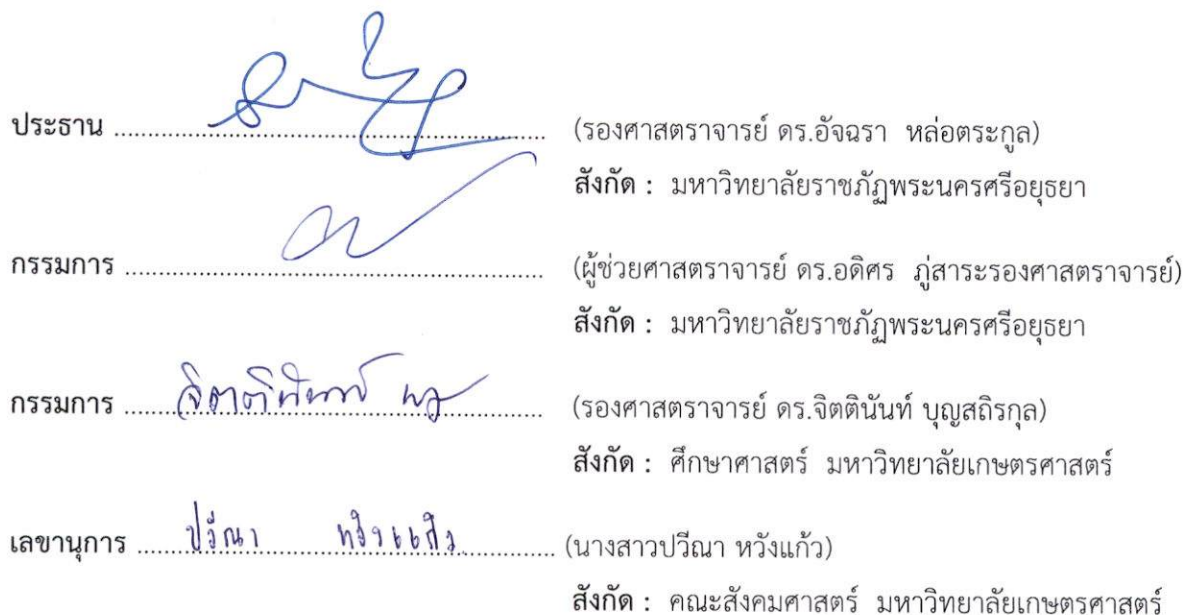 ประธาน .......... (รองศาสตราจารย์ ดร.อัจฉรา หล่อตระกูล)
สังกัด : มหาวิทยาลัยราชภัฏพระนครศรีอยุธยา
กรรมการ .......... (ผู้ช่วยศาสตราจารย์ ดร.อดิศร ภู่สาระรองศาสตราจารย์)
สังกัด : มหาวิทยาลัยราชภัฏพระนครศรีอยุธยา
กรรมการ .......... จิตตินันท์ (รองศาสตราจารย์ ดร.จิตตินันท์ บุญสถิรกุล)
สังกัด : ศึกษาศาสตร์ มหาวิทยาลัยเกษตรศาสตร์
เลขานุการ .......... ปวีณา หวังแก้ว (นางสาวปวีณา หวังแก้ว)
สังกัด : คณะสังคมศาสตร์ มหาวิทยาลัยเกษตรศาสตร์